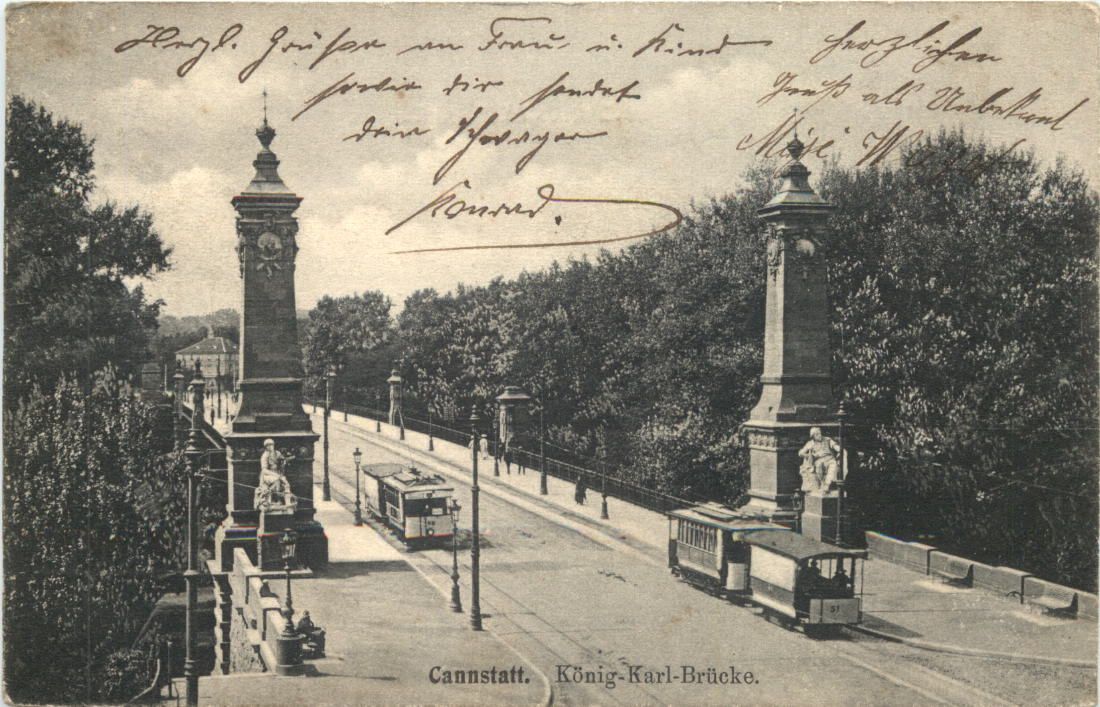 Herzl. Grüße an Frau u. Kind
sowie dir sendet
dein Schwager
Konrad.
herzlichen
Gruß als Unbekant
51
Cannstatt. König-Karl-Brücke.